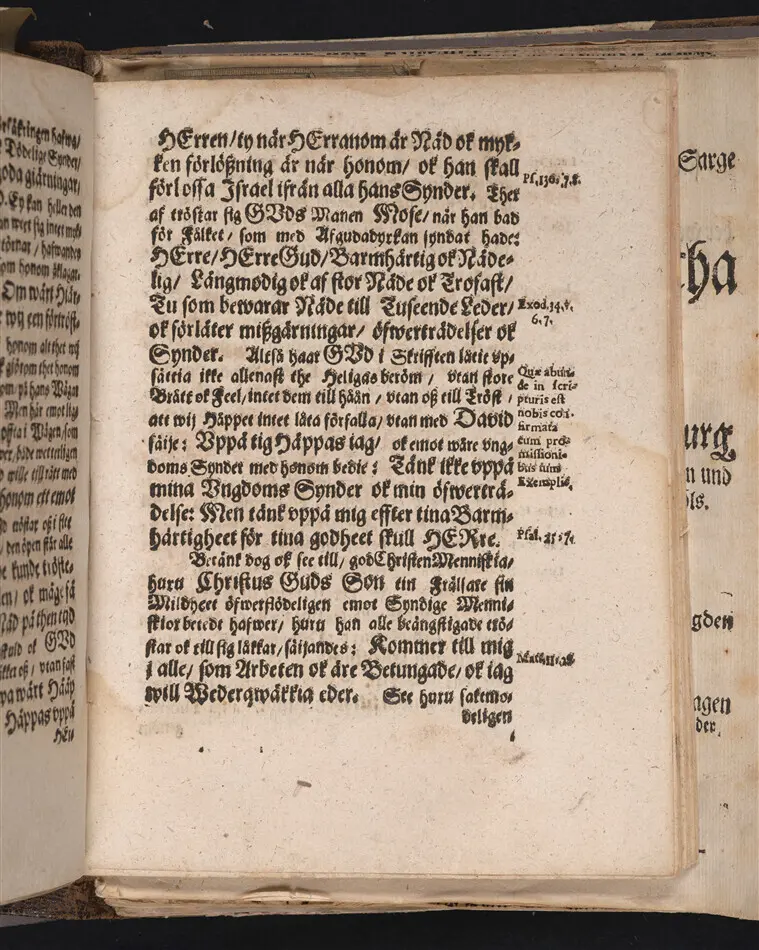 HErren/ ty när HErranom är Nåd ok myk-
ken förlößning är när honom/ ok han skall
förlossa Israel ifrån alla hans Synder. Ther
af tröstar sig GVds Manen Mose/ när han bad
för Fålket/ som med Afgudadyrkan syndat hade:
HErre/ HErre Gud/ Barmhärtig ok Nåde-
lig/ Långmodig ok af stor Nåde ok Trofast/
Tu som bewarar Nåde till Tuseende Leder/
ok förläter mißgärningar/ öfwerträdelser ok
Synder. Altså haar GVD i Skrifften låtit vp-
sättia ikke allenast the Heligas beröm/ vtan store
Brått ok Feel/ intet dem till håån/ vtan oß till Tröst/
att wij Håppet intet låta förfalla/ vtan med David
säije: Vppå tig Håppas iag/ ok emot wåre vng-
doms Synder med honom bedie: Tänk ikke vppå
mina Vngdoms Synder ok min öfwerträ-
delse: Men tänk vppå mig effter tina Barm-
härtigheet för tina godheet skull HERre.
Betänk dog ok see till/ god Christen Menniskia/
huru Christus Guds Son ein Frälsare sin
Mildheet öfwerflödeligen emot Syndige Menni-
skior betedt hafwer/ huru han alle beängstigade trö-
star ok till sig låkkar/ säijandes: Kommer till mig
i alle/ som Arbeten ok äre Betungade/ ok iag
will Wederqwäkkia eder. See huru sakemo-
deligen
Ps. 130. 7. 8.
Exod. 34. v.
6. 7.
Quæ abun-
de in scri-
pturis est
nobis con-
firmata
cum pro-
missioni-
bus tum
Exemplis.
Psal. 25. 7.
Math. 11. 28
Sarge
ha
urg
n und
ols.
gden
agen
der.
Tödelige Synder/
goda giärningar/
Om wårt Hiär-
honom alt thet wij
Men här emot lig-
honom ett emot
GVD
Håppas vppå
HEr-